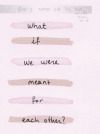 what
if
we were
meant
for
each other?